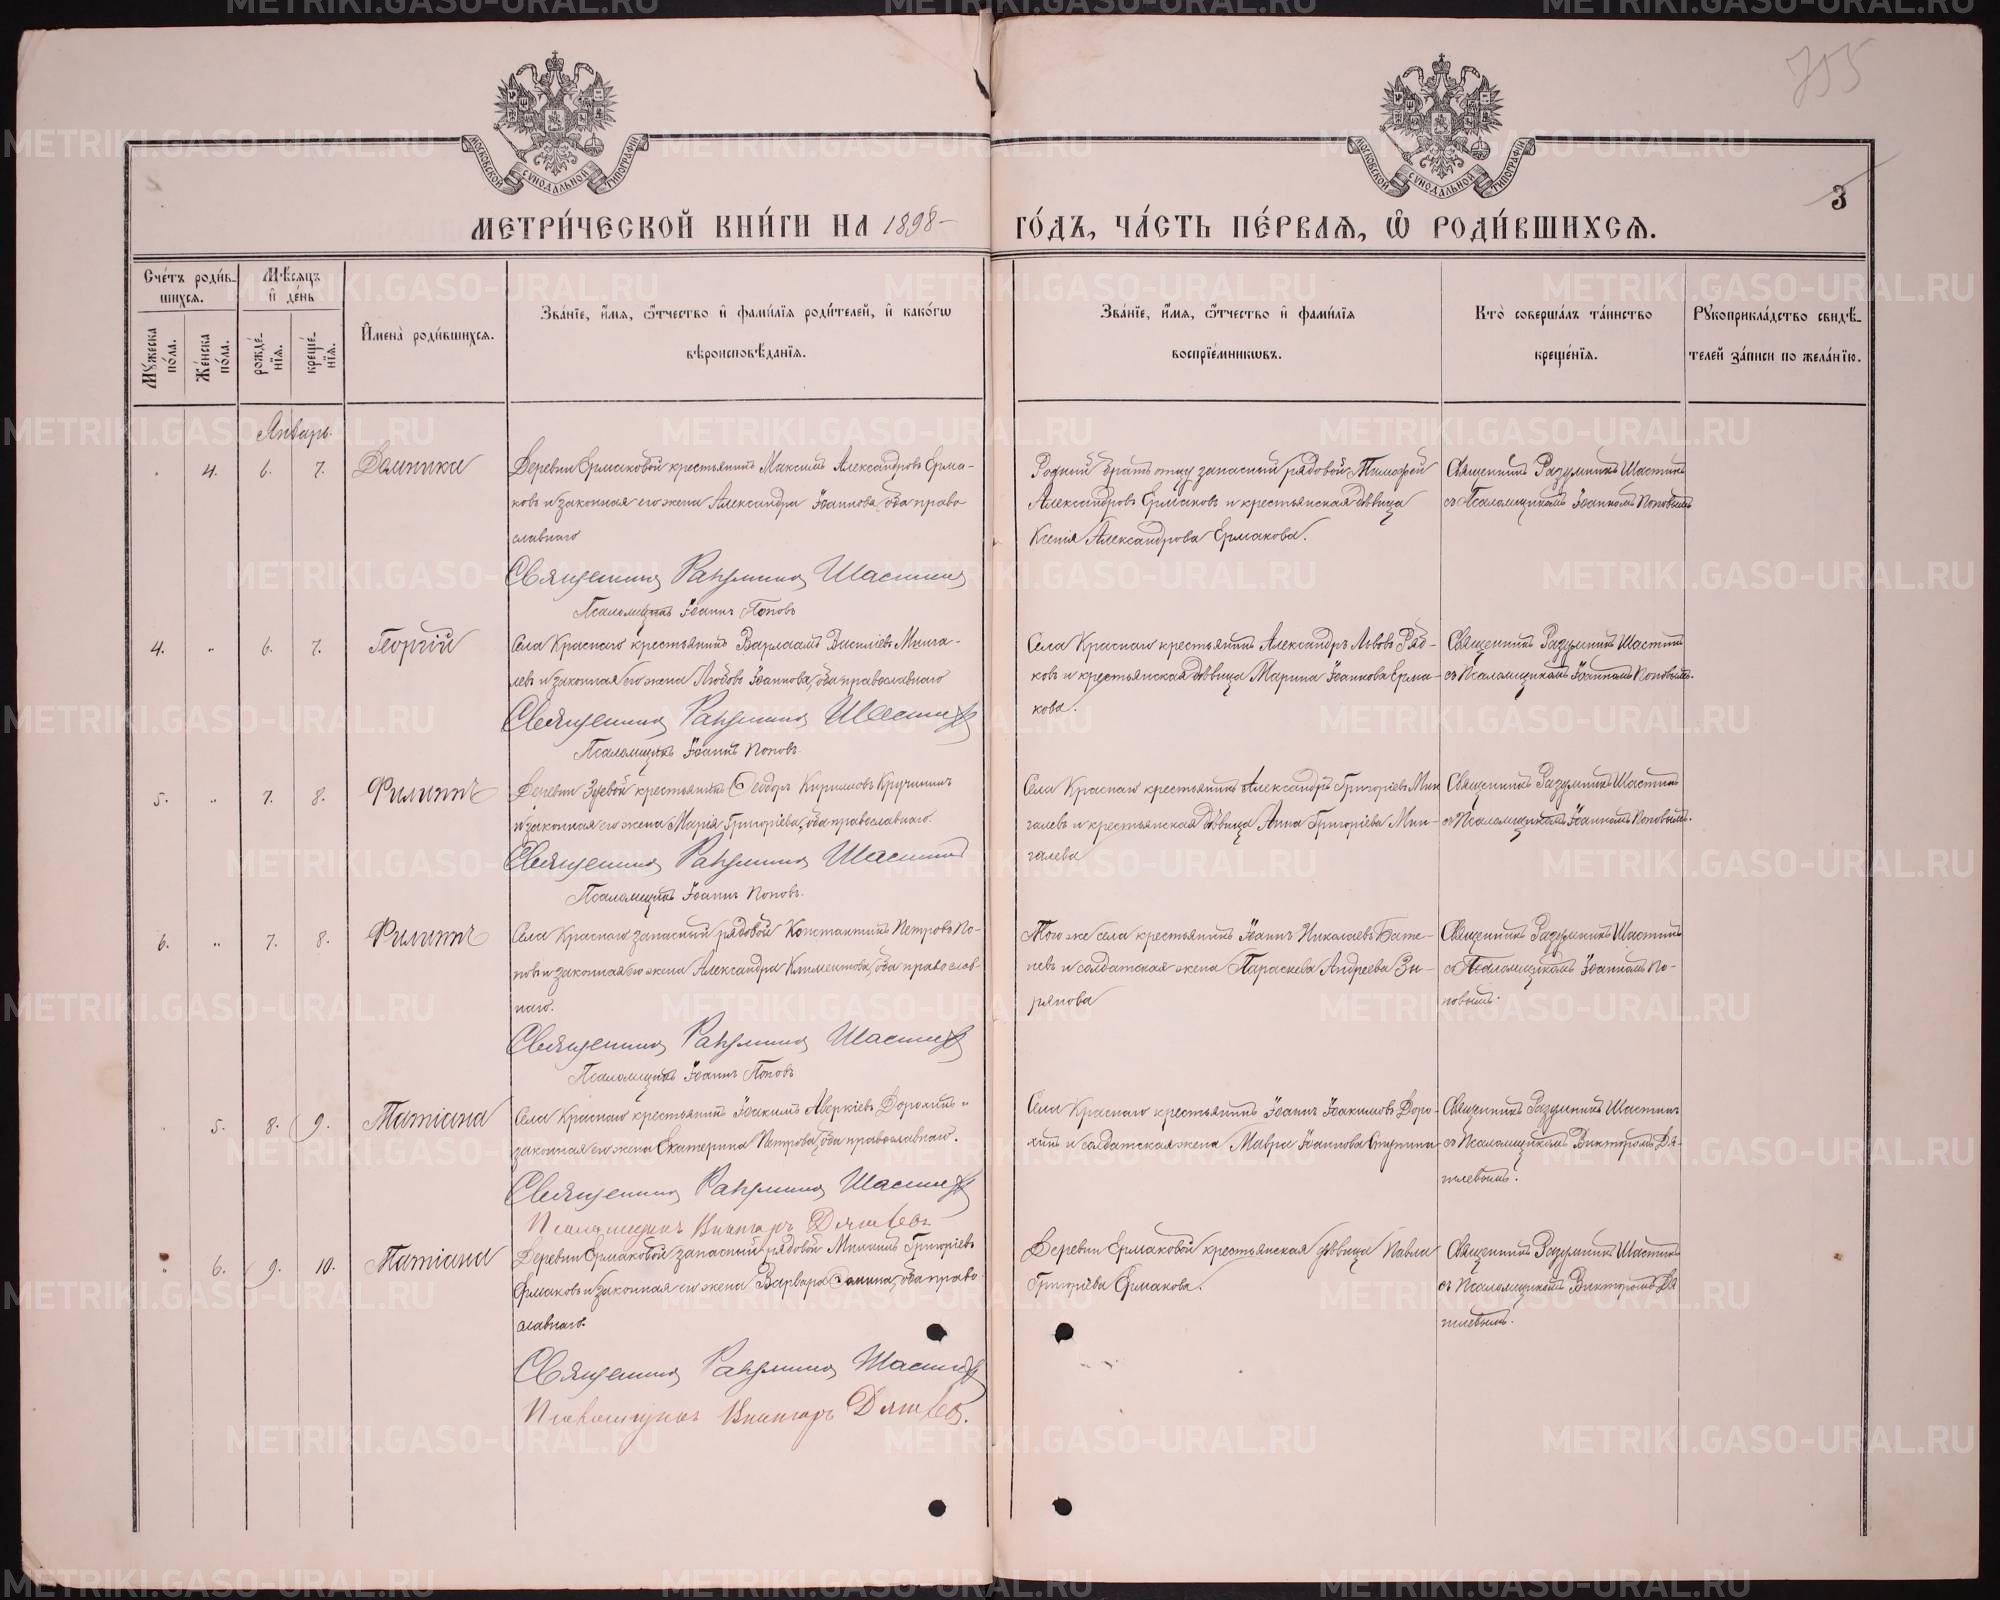 755
3
МОСКОВСКОЙ СѴНОДАЛЬНОЙ ТИПОГРАФІИ
МОСКОВСКОЙ СѴНОДАЛЬНОЙ ТИПОГРАФІИ
МЕТРИ́ЧЕСКОЙ КНИ́ГИ НА 1898 ГО́ДЪ, ЧА́СТЬ ПЕ́РВАѦ, Ѽ РОДИ́ВШИХСѦ.
Сче́тъ роди́в-
шихсѧ.
Мꙋ́жеска по́ла.
Же́нска по́ла.
Мѣ́сѧцъ
и҆ де́нь
рожде́-
нїѧ.
креще́-
нїѧ.
И҆мена̀ роди́вшихсѧ.
Зва́нїе, и҆́мѧ, ѻ҆́тчество и҆ фами́лїѧ роди́телей, и҆ како́гѡ
вѣроисповѣ́данїѧ.
Зва́нїе, и҆́мѧ, ѻ҆́тчество и҆ фами́лїѧ
воспрїе́мникѡвъ.
Кто̀ соверша́лъ та́инство
креще́нїѧ.
Рꙋкоприкла́дство свидѣ́-
телей за́писи по жела́нїю.
Январь.
4. 6. 7. Домника
Деревни Ермаковой крестьянинъ Максимъ Александровъ Ерма-
ковъ и законная его жена Александра Іоаннова, оба право-
славнаго
Священникъ Разумникъ Шастинъ
Псаломщикъ Іоаннъ Поповъ
Родной братъ отцу запасный рядовой Тимофей
Александровъ Ермаковъ и крестьянская дѣвица
Ксенія Александрова Ермакова.
Священникъ Разумникъ Шастинъ
съ Псаломщикомъ Іоанномъ Поповымъ
4. " 6. 7. Георгій
Села Краснаго крестьянинъ Варлаамъ Василіевъ Минга-
левъ и законная его жена Любовь Іоаннова, оба православнаго
Священникъ Разумникъ Шастинъ
Псаломщикъ Іоаннъ Поповъ.
Села Краснаго крестьянинъ Александръ Львовъ Ряд-
ковъ и крестьянская дѣвица Марина Іоаннова Ерма-
кова.
Священникъ Разумникъ Шастинъ
съ Псаломщикомъ Іоанномъ Поповымъ.
5. " 7. 8. Филиппъ
Деревни Зуевой крестьянинъ Ѳеодоръ Кириловъ Кручининъ
и законная его жена Марія Григоріева, оба православнаго.
Священникъ Разумникъ Шастинъ
Псаломщикъ Іоаннъ Поповъ.
Села Краснаго крестьянинъ Александръ Григоріевъ Мин
галевъ и крестьянская дѣвица Анна Григоріева Мин-
галева
Священникъ Разумникъ Шастинъ
съ Псаломщикомъ Іоанномъ Поповымъ.
6. " 7. 8. Филиппъ
Села Краснаго запасный рядовой Константинъ Петровъ По-
повъ и законная его жена Александра Климентова, оба православ-
наго.
Священникъ Разумникъ Шастинъ
Псаломщикъ Іоаннъ Поповъ
Того же села крестьянинъ Іоаннъ Николаевъ Бате-
невъ и солдатская жена Параскева Андреева Зы-
рянова
Священникъ Разумникъ Шастинъ
съ Псаломщикомъ Іоанномъ По-
повымъ.
5. 8. 9. Татіана
Села Краснаго крестьянинъ Іоакимъ Аверкіевъ Дорохинъ и
законная его жена Екатерина Петрова, оба православнаго.
Священникъ Разумникъ Шастинъ
Псаломщикъ Викторъ Дятлевъ
Села Краснаго крестьянинъ Іоаннъ Іоакимовъ Доро-
хинъ и солдатская жена Мавра Іоаннова
Священникъ Разумникъ Шастинъ
съ Псаломщикомъ Викторомъ Дя-
тлевымъ.
" 6. 9. 10. Татіана
Деревни Ермаковой запасный рядовой Григоріевъ
Ермаковъ и законная его жена Варвара Ѳомина, оба право-
славнаго.
Священникъ Разумникъ Шастинъ
Псаломщикъ Викторъ Дятлевъ.
Деревни Ермаковой крестьянская дѣвица Павла
Григорьева Ермакова.
Священникъ Разумникъ Шастинъ
съ Псаломщикомъ Викторомъ Дя
тлевымъ.
METRIKI.GASO-URAL.RU